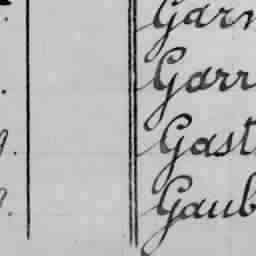 Garn
Garr
Gast
Gaub